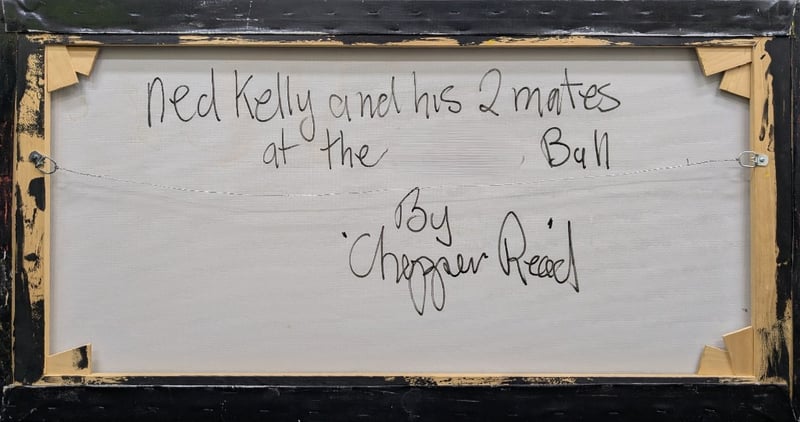 Ned Kelly and his 2 mates
at the Ball
By
'Chopper Read'